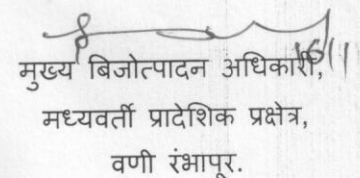 16/11
मुख्य बिजोत्पादन अधिकारी,
मध्यवर्ती प्रादेशिक प्रक्षेत्र,
वणी रंभापूर.